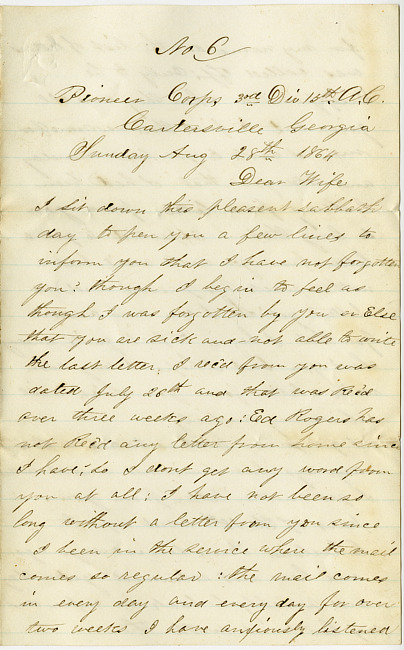 No. 6
Pioneer Corps 3rd Div 15th A.C.
Cartersville Georgia
Sunday Aug 28th 1864
Dear Wife
I sit down this pleasent sabbath
day to pen you a few lines to
inform you that I have not forgotten
you: though I began to feel as
though I was forgotten by you or Else
that you are sick and not able to write
the last letter, I recd from you was
dated July 26th and that was Recd
over three weeks ago: Ed Rogers has
not Recd any letter from home since
I have; so I dont get any word from
you at all: I have not been so
long without a letter from you since
I been in the service where the mail
comes so regular: the mail comes
in every day and every day for over
two weeks I have anxiously listened